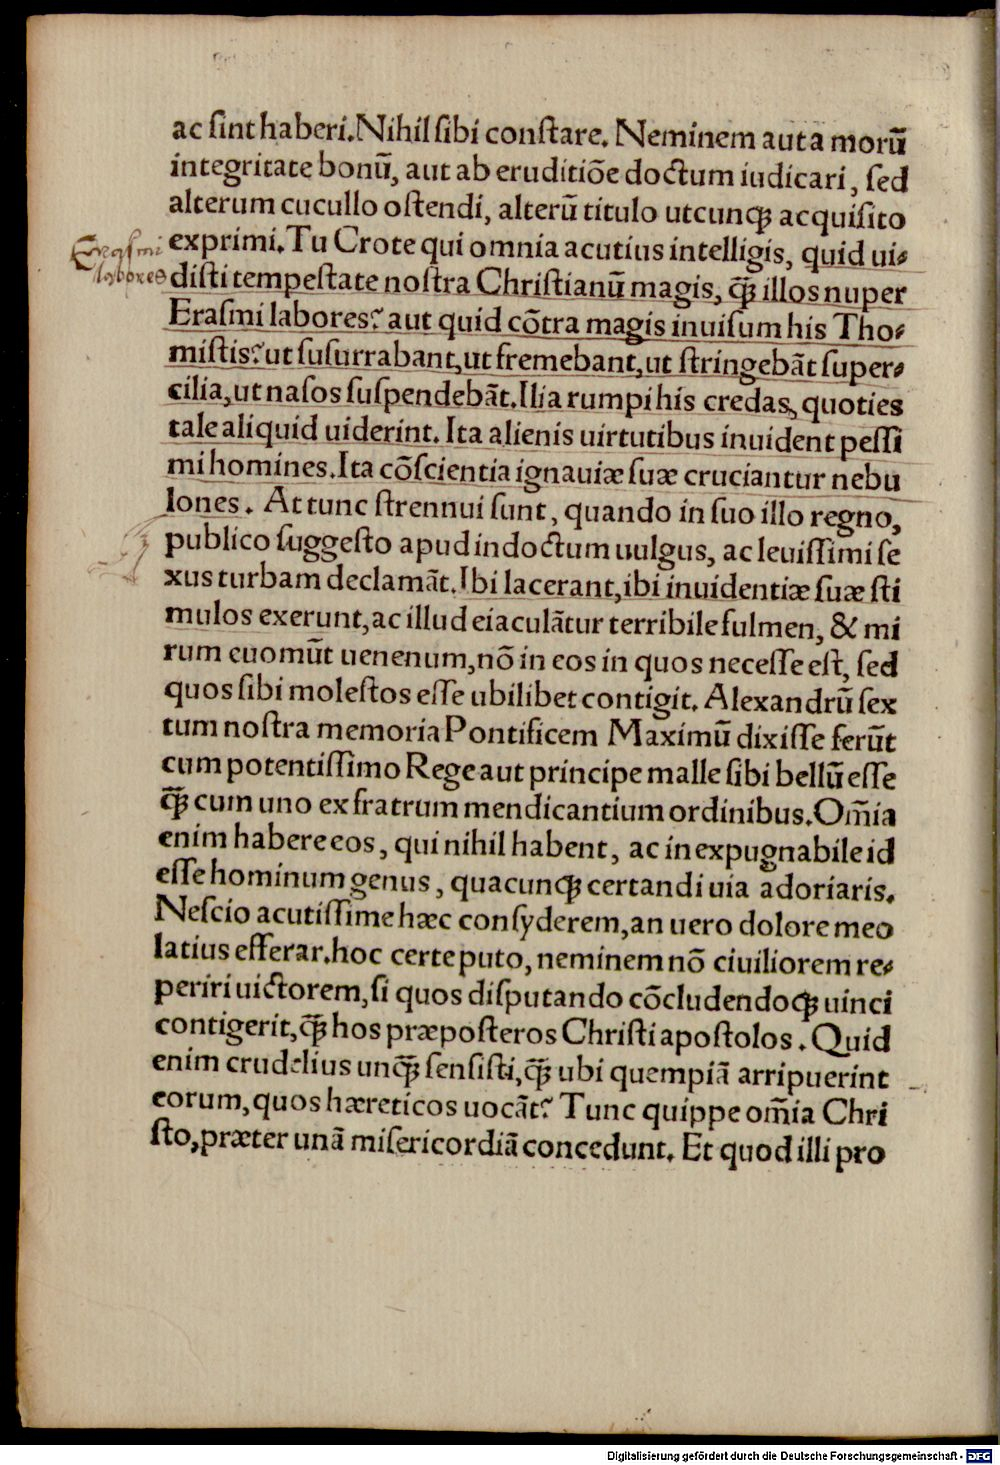 ac ſint haberi. Nihil ſibi conſtare. Neminem aut a morū
integritate bonū, aut ab eruditiōe doctum iudicari, ſed
alterum cucullo oſtendi, alterū titulo utcunqꝫ acquiſito
exprimi. Tu Crote qui omnia acutius intelligis, quid ui⸗
Eraſmi
labores
diſti tempeſtate noſtra Chriſtianū magis, q̄ꝫ illos nuper
Eraſmi labores? aut quid cōtra magis inuiſum his Tho⸗
miſtis? ut ſuſurrabant, ut fremebant, ut ſtringebāt ſuper⸗
cilia, ut naſos ſuſpendebāt. Ilia rumpi his credas, quoties
tale aliquid uiderint. Ita alienis uirtutibus inuident peſſi
mi homines. Ita cōſcientia ignauiæ ſuæ cruciantur nebu
lones. At tunc ſtrennui ſunt, quando in ſuo illo regno,
publico ſuggeſto apud indoctum uulgus, ac leuiſſimi ſe
xus turbam declamāt. Ibi lacerant, ibi inuidentiæ ſuæ ſti
mulos exerunt, ac illud eiaculātur terribile fulmen, & mi
rum euomūt uenenum, nō in eos in quos neceſſe eſt, ſed
quos ſibi moleſtos eſſe ubilibet contigit. Alexandrū ſex
tum noſtra memoria Pontificem Maximū dixiſſe ferūt
cum potentiſſimo Rege aut principe malle ſibi bellū eſſe
q̄ꝫ cum uno ex fratrum mendicantium ordinibus. Om̄ia
enim habere eos, qui nihil habent, ac inexpugnabile id
eſſe hominum genus, quacunqꝫ certandi uia adoriaris.
Neſcio acutiſſime hæc conſyderem, an uero dolore meo
latius efferar. hoc certe puto, neminem nō ciuiliorem re⸗
periri uictorem, ſi quos diſputando cōcludendoqꝫ uinci
contigerit, q̄ꝫ hos præpoſteros Chriſti apoſtolos. Quid
enim crudelius unq̄ꝫ ſenſiſti, q̄ꝫ ubi quempiā arripuerint
eorum, quos hæreticos uocāt? Tunc quippe om̄ia Chri
ſto, præter unā miſericordiā concedunt. Et quod illi pro
Digitalisierung gefördert durch die Deutsche Forschungsgemeinschaft - DFG